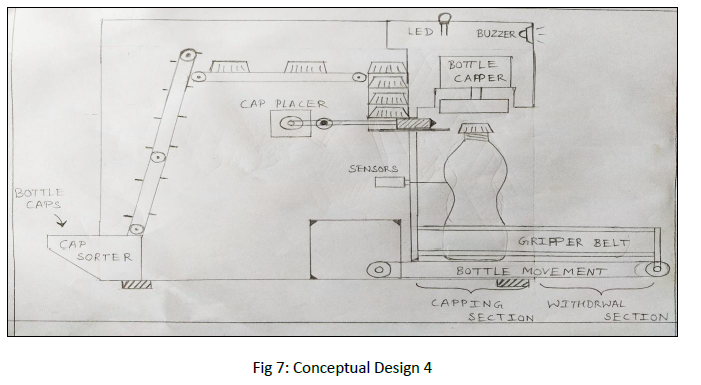 LED
BUZZER
BOTTLE
CAPPER
CAP PLACER
SENSORS
BOTTLE
CAPS
CAP
SORTER
GRIPPER BELT
BOTTLE MOVEMENT
CAPPING
SECTION
WITHDRWAL
SECTION
Fig 7: Conceptual Design 4